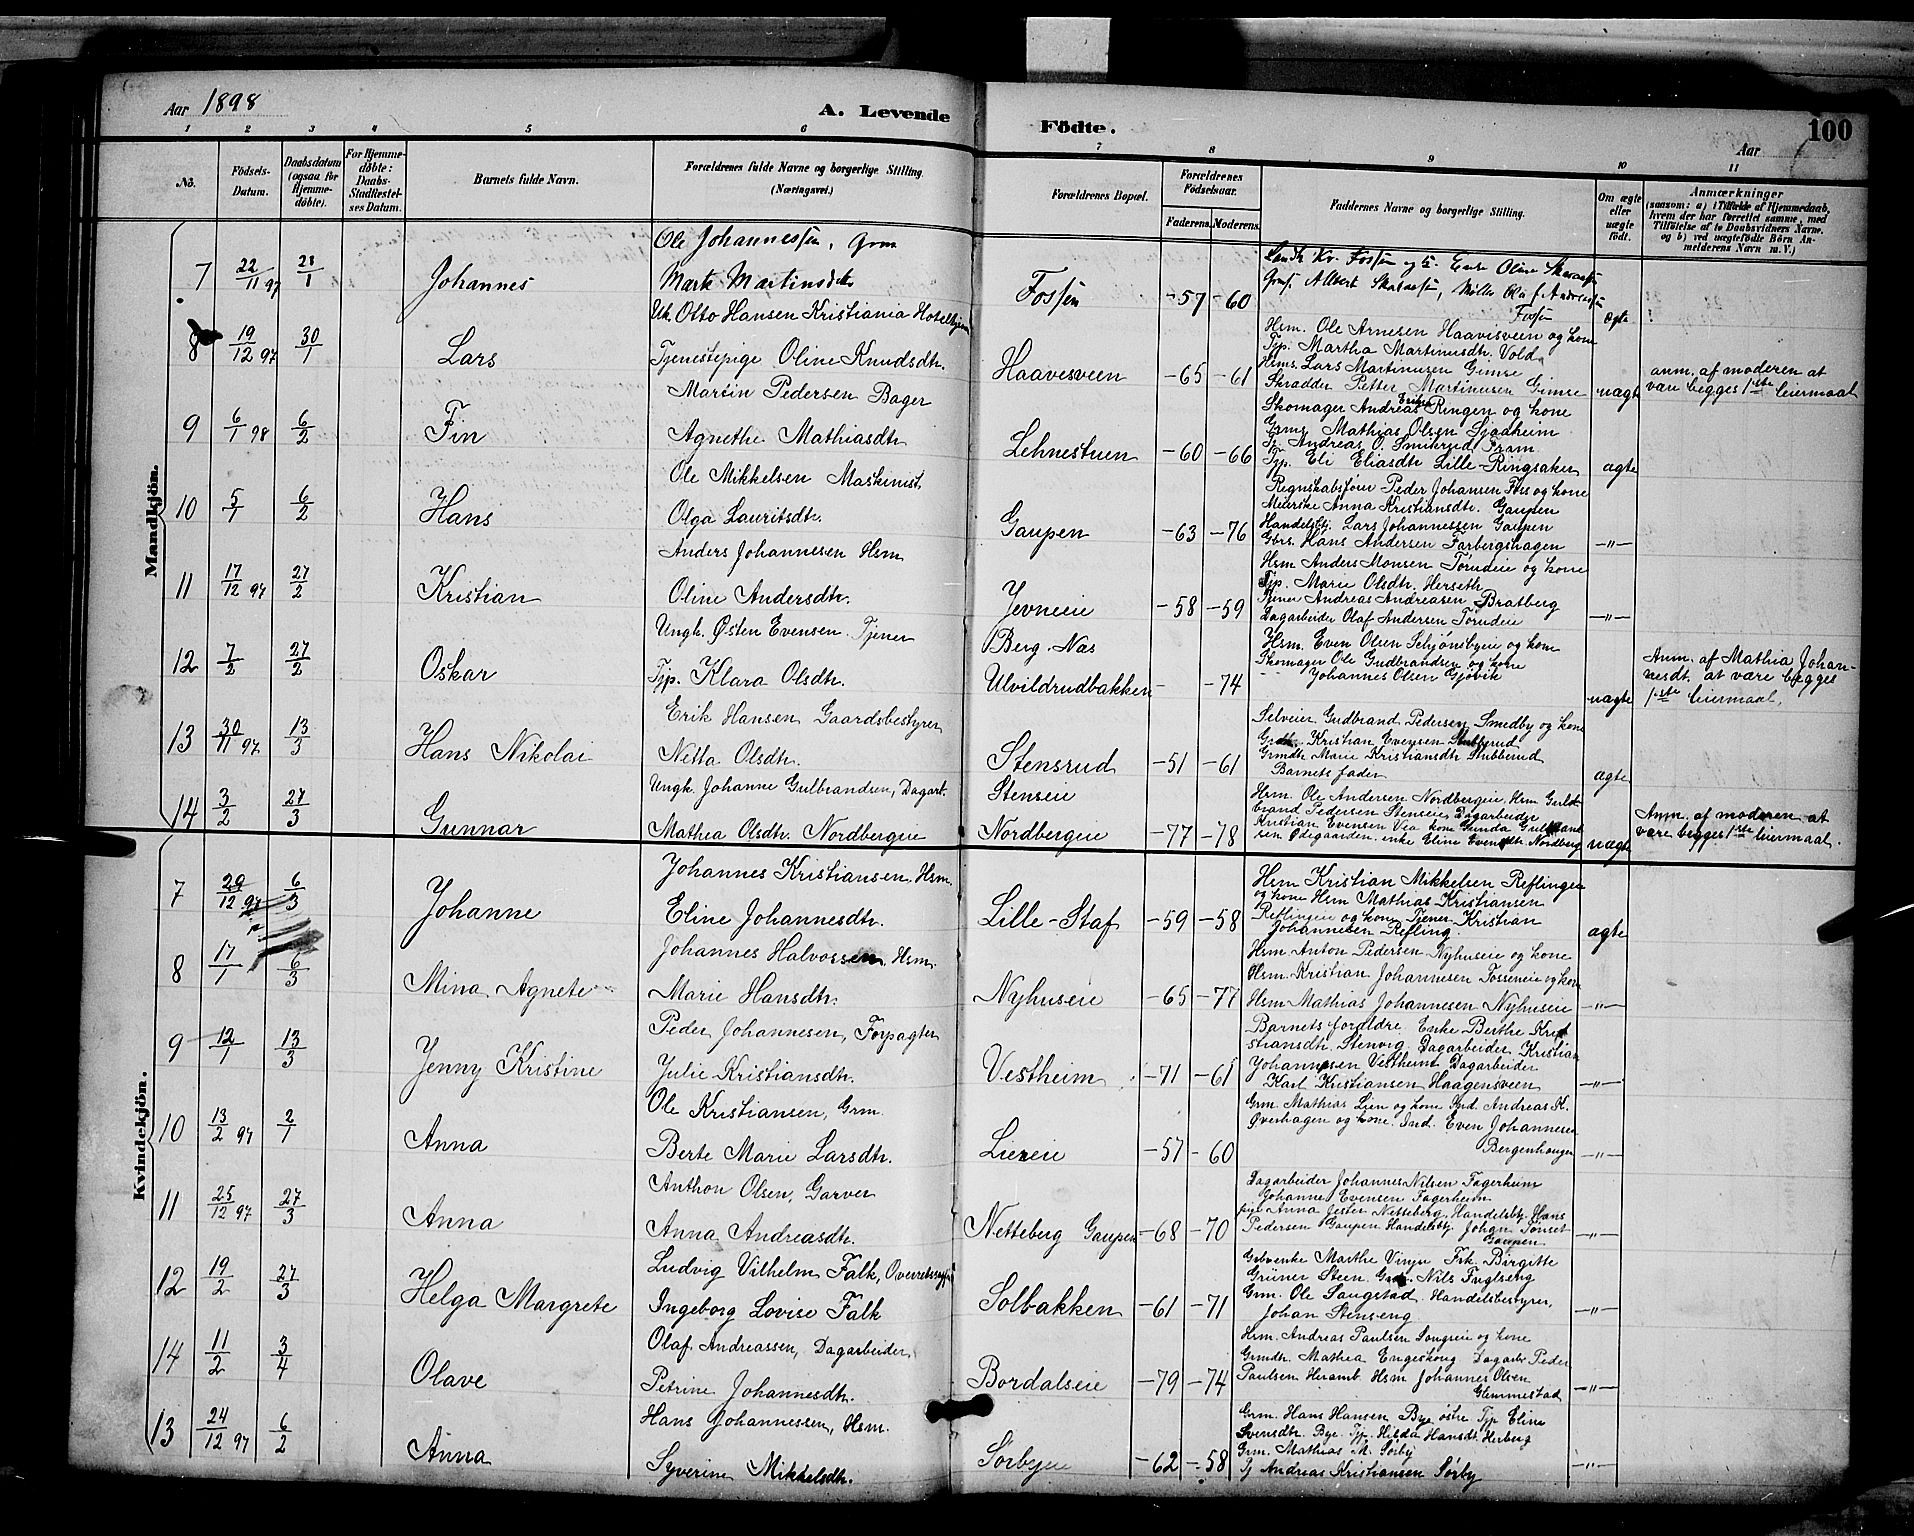 Aar 1898
A. Levende
Födte.
100
Aar
1 2 3 4 5 6 7 8 9 10 11
No.
Födsels-Datum.
Daabsdatum (ogsaa for Hjemmedöbte).
For Hjemmedöbte: Daabs-Stadfæstelses Datum.
Barnets fulde Navn.
Forældrenes fulde Navne og borgerlige Stilling. (Næringsvei.)
Forældrenes Bopæl.
Forældrenes Födselsaar.
Faderens. Moderens.
Faddernes Navne og borgerlige Stilling.
Om ægte eller uægte födt.
Anmærkninger
(saasom: a) i Tilfælde af Hjemmedaab, hvem der har forrettet samme, med Tilföielse af to Daabsvidners Navne, og b) ved uægtefödte Börn Anmelderens Navn m. V.)
Mandkjön.
7 22/11 97 23/1 Johannes
Ole Johannessen, Grm
Mart. Martinsdtr
Fossen -57 -60
ægte
8 19/12 97 30/1 Lars
Uk. Otto Hansen Kristiania
Tjenestepige Oline Knudsdtr.
Haavesveen -65 -61
Hsm. Ole Arnesen Haavisveen og kone
Tjp. Martha Martinusdtr. Vold
Hrms. Lars Martinusen Gimse
Skrædder Petter Martinusen Gimse
uægt
anm. af moderen at
være begges 1ste leiermaal
9 6/1 98 6/2 Fin
Martin Pedersen Bager
Agnethe Mathiasdtr
Lehnestuen -60 -66
Skomager Andreas Ringen og kone
Grms Mathias Olsen Sjødheim
Tj. Andreas O. Smikrud Fram
Tjp. Eli Eliasdtr Lille-Ringsaker
ægte
10 5/1 6/2 Hans
Ole Mikkelsen Maskinist
Olga Lauritsdtr.
Gaupen -63 -76
Regnskabsfører Peder Johansen Fos og kone
Meierske Anna Kristiansdtr. Gaupen
Handelsbj. Lars Johannessen Gaupen
Gbrs. Hans Andersen Farbergshagen
-"-
11 17/12 97 27/2 Kristian
Anders Johannesen Hsm
Oline Andersdtr.
Jevneeie -58 -59
Hsm Anders Monsen Torudeie og kone
Tjp. Marie Olsdtr. Herseth
Tjener Andreas Andreasen Bratberg
Dagarbeider Olaf Andersen Torudeie
-"-
12 7/2 27/2 Oskar
Ungk. Østen Evensen Tjener
Tjp. Klara Olsdtr.
Berg. Næs
Ulvildrudbakken - -74
Hsm. Even Olsen Schjønsbyeie og kone
Skomager Ole Gudbrandsen og kone
Johannes Olsen Gjøvik
uægte
Anm. af Mathia Johan-
nesdt. at være begges
1ste leiermaal.
13 30/11 97 13/3 Hans Nikolai
Erik Hansen Gaardsbestyrer
Netta Olsdtr.
Stensrud -51 -61
Selveier Gudbrand Pedersen Smedby og kone
Grdbr. Kristian Evensen Stubberud
Grmdtr Marie Kristiansdtr Stubberud
Barnets fader
ægte
14 3/2 27/3 Gunnar
Ungk. Johanne Gulbrandsen, Dagarb.
Mathea Olsdtr. Nordbergeie
Stenseie
Nordbergeie -77 -78
Hsm. Ole Andersen Nordbergeie, Hsm Guld-
brand Pedersen Stenseie, Dagarbeider
Kristian Evensen Vea kone Gunda Gulbrand
sen Ødegaarden. enke Eline Evensdtr Nordberg
uægt
Anm. af moderen at
være begges 1ste leiermaal.
Kvindekjön.
7 29/12 97 6/3 Johanne
Johannes Kristiansen, Hsm.
Eline Johannesdtr.
Lille-Staf -59 -58
Hsm Kristian Mikkelsen Reflingeie
og kone Hsm Mathias Kristiansen
Reflingeie og kone. Tjener Kristian
Johannesen Refling.
ægte
8 17/1 6/3 Mina Agnete
Johannes Halvorsen, Hsm.
Marie Hansdtr.
Nyhuseie -65 -77
Hsm. Anton Pedersen Nyhuseie og kone
Hsm. Kristian Johannesen Fosseneie og kone
Hsm Mathias Johannesen Nyhuseie
-"-
9 12/1 13/3 Jenny Kristine
Peder Johannesen, Forpagter
Julie Kristiansdtr.
Vestheim -71 -61
Barnets forældre. Enke Berthe Krist
iansdtr. Stenvig. Dagarbeider Kristian
Johannesen Vestheim Dagarbeider
Karl Kristiansen Haagensveen
-"-
10 13/2 97 2/1 Anna
Ole Kristiansen, Grm.
Berte Marie Larsdtr.
Liereie -57 -60
Grm. Mathias Lien og kone Ind. Andreas K.
Øverhagen og kone. Ind. Even Johannesen
Bergenhaugen
-"-
11 25/12 97 27/3 Anna
Anthon Olsen, Garver
Anna Andreasdtr.
Netteberg Gaupen -68 -70
Dagarbeider Johannes Nilsen Fagerheim
Johanne Evensen Fagerheim
pige Anna Jester Netteberg, Handelsbtj. Hans
Pedersen Gaupen Handelsbtj. Johan Tønset
Gaupen
-"-
12 19/2 27/3 Helga Margrete
Ludvig Vilhelm Falk, Overretssagf.
Ingeborg Lovise Falk
Solbakken -61 -71
Gbrenke Marthe Vinju Frk. Birgitte
Grüner Steen Grd. Nils Fuglseng
Grm. Ole Saugstad. Handelsbestyrer,
Johan Stenseng
-"-
14 11/2 3/4 Olave
Olaf Andreassen, Dagarbeider.
Petrine Johannesdtr.
Bordalseie -79 -74
Hsm. Andreas Paulsen Songseie og kone
Grmdtr. Mathea Engeskoug Dagarbr Peder
Paulsen Heramb Hsm Johannes Olsen
Glemmestad
-"-
13 24/12 97 6/2 Anna
Hans Johannessen, Hsm.
Syverine Mikkelsdtr.
Sørbyeie -62 -58
Grm. Hans Hansen Bye østre Tjp Eline
Svensdtr. Bye. Tjp. Hilda Hansdt. Herberg
Grm. Mathias M. Sørby
Tj Andreas Kristiansen Sørby
-"-